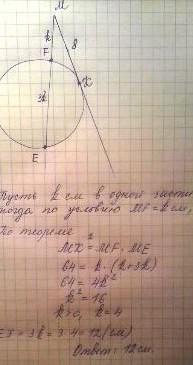 M
k
8
F
K
3k
E
Пусть k см в одной части
тогда по условию MF = k см,
По теореме
MK² = MF · ME
64 = k · (k+3k)
64 = 4k²
k² = 16
k>0, k = 4
= 3k = 3·4 = 12 (см)
Ответ: 12 см.